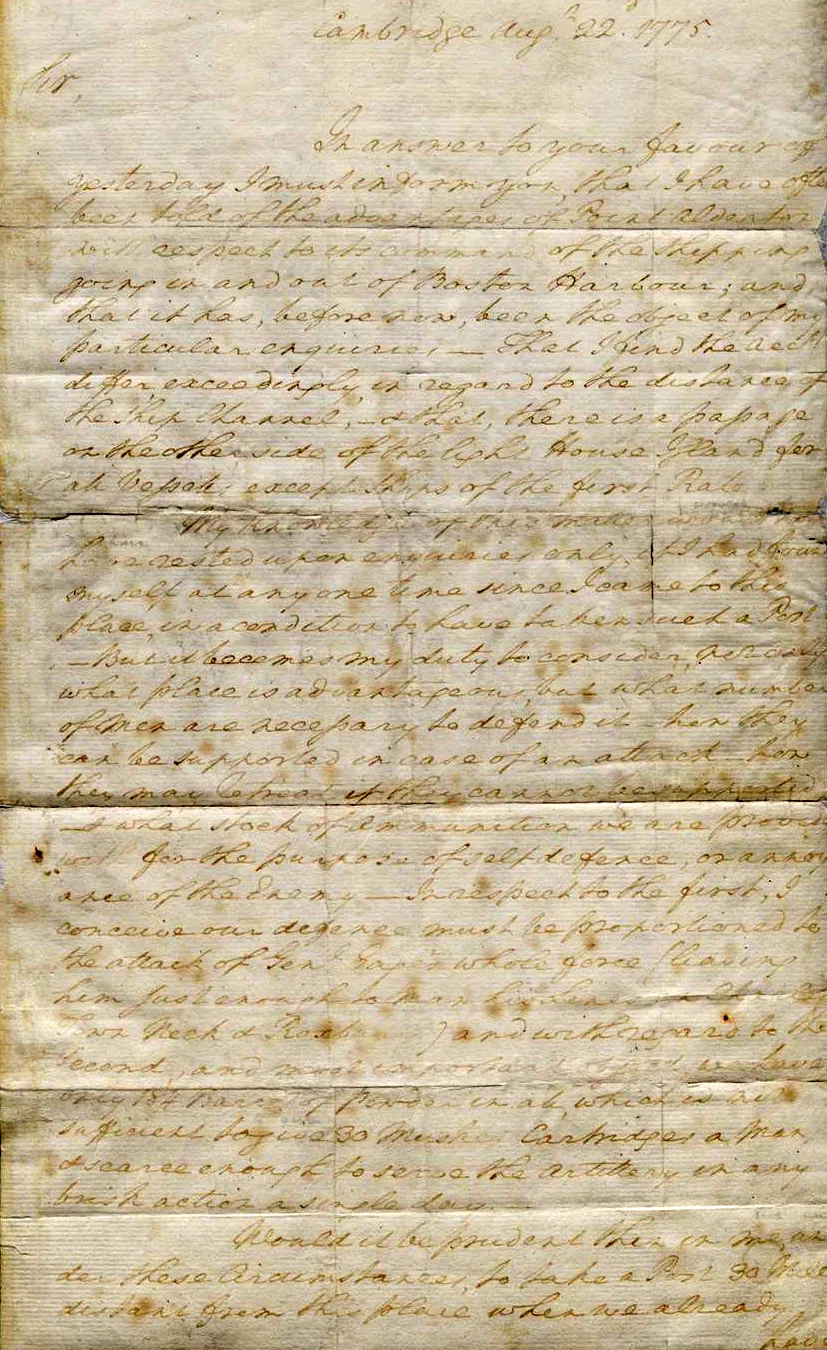 Cambridge Augt. 22d. 1775.
Sir,
In answer to your favour of
yesterday I must inform you, that I have often
been told of the advantages of Point Alderton
with respect to its command of the shipping
going in and out of Boston Harbour; and
that it has, before now, been the object of my
particular enquiries — That I find the Acct
differ exceedingly in regard to the distance of
the Ship Channel, — & that, there is a passage
on the other side of the light House Island for
all Vessels except Ships of the first Rate
My knowledge of this matter would not
have rested upon enquiries only, if I had found
myself at any one time since I came to this
place, in a condition to have taken such a Post
— But it becomes my duty to consider, not only
what place is advantageous, but what number
of Men are necessary to defend it — how they
can be supported in case of an attack — how
they may retreat if they cannot be supported
— & what stock of Ammunition we are provided
with for the purpose of self defence, or annoy
ance of the Enemy — In respect to the first, I
conceive our defence must be proportioned to
the attack of Genl. Gage's whole force (leaving
him just enough to man his Lines on Charles
Town Neck & Roxbury) and with regard to the
Second, and most important we have
only 184 Barrls of powder in all, which is not
sufficient to give 30 Musket Cartridges a Man,
& scarce enough to serve the Artillery in any
brisk action a single day. —
Would it be prudent then in me, un
der these Circumstances, to take a Post 30 Miles
distant from this place when we already
have